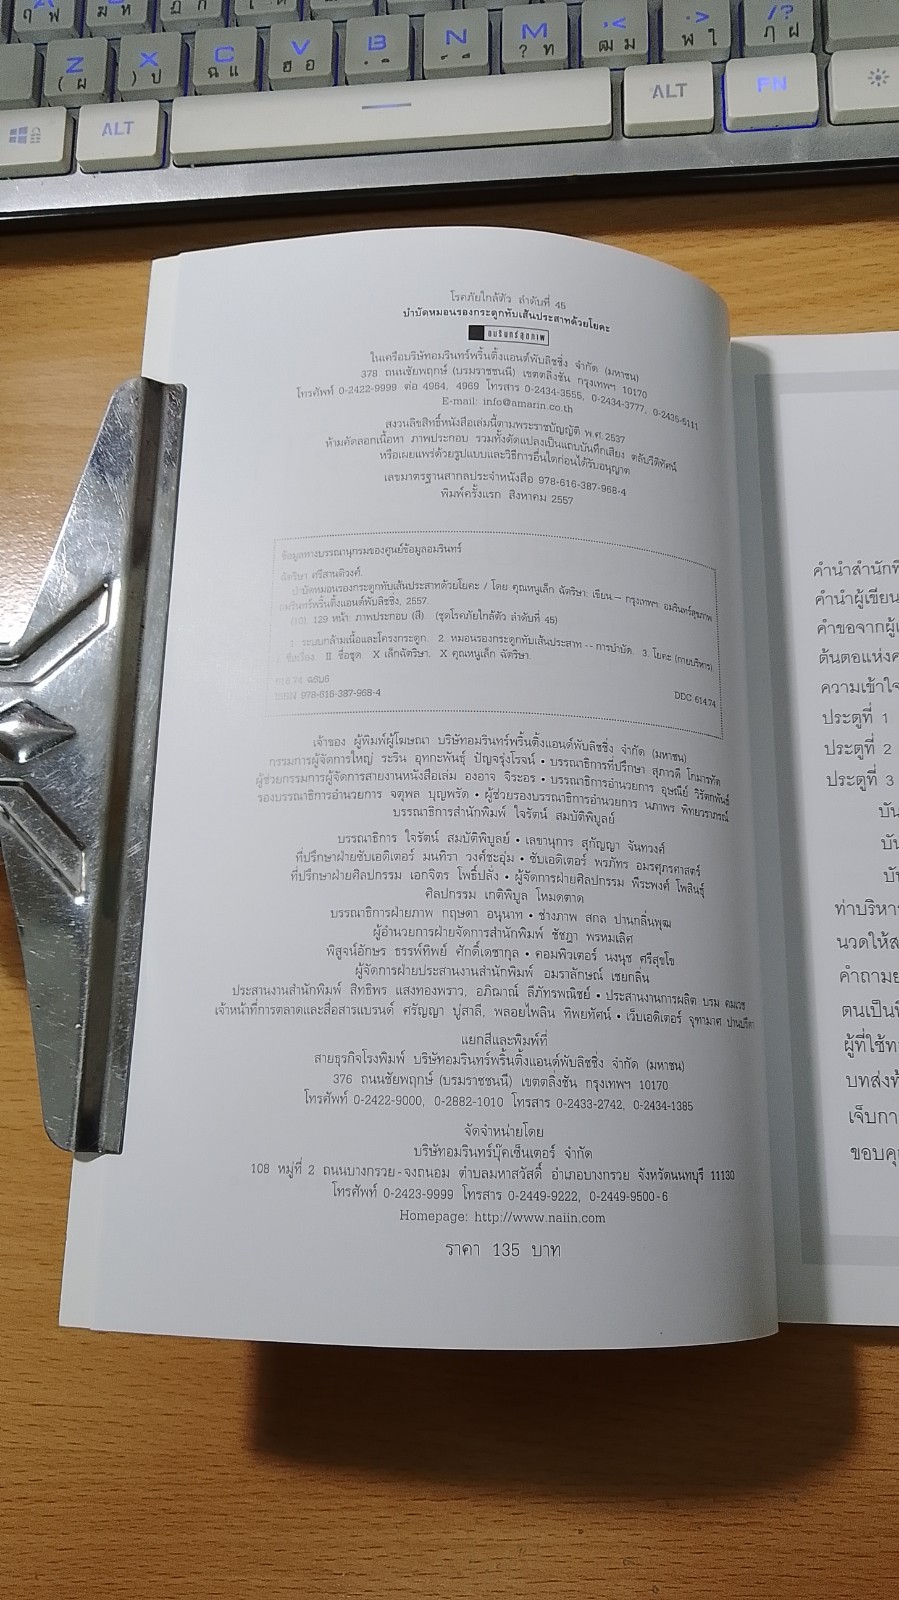 Z
X
C
V
B
N
M
ALT
ALT
FN
โรคภัยใกล้ตัว ลำดับที่ 45
บำบัดหมอนรองกระดูกทับเส้นประสาทด้วยโยคะ
อมรินทร์สุขภาพ
ในเครือบริษัทอมรินทร์พริ้นติ้งแอนด์พับลิชชิ่ง จำกัด (มหาชน)
378 ถนนชัยพฤกษ์ (บรมราชชนนี) เขตตลิ่งชัน กรุงเทพฯ 10170
โทรศัพท์ 0-2422-9999 ต่อ 4964, 4969 โทรสาร 0-2434-3555, 0-2434-3777, 0-2435-5111
E-mail: info@amarin.co.th
สงวนลิขสิทธิ์หนังสือเล่มนี้ตามพระราชบัญญัติ พ.ศ. 2537
ห้ามคัดลอกเนื้อหา ภาพประกอบ รวมทั้งดัดแปลงเป็นแถบบันทึกเสียง ตลับวีดิทัศน์
หรือเผยแพร่ด้วยรูปแบบและวิธีการอื่นใดก่อนได้รับอนุญาต
เลขมาตรฐานสากลประจำหนังสือ 978-616-387-968-4
พิมพ์ครั้งแรก สิงหาคม 2557
ข้อมูลทางบรรณานุกรมของศูนย์ข้อมูลอมรินทร์
ฉัตริษา ศรีสานติวงศ์
บำบัดหมอนรองกระดูกทับเส้นประสาทด้วยโยคะ / โดย คุณหนูเล็ก ฉัตริษา: เขียน -- กรุงเทพฯ: อมรินทร์สุขภาพ
อมรินทร์พริ้นติ้งแอนด์พับลิชชิ่ง, 2557.
(10), 129 หน้า: ภาพประกอบ (สี). (ชุดโรคภัยใกล้ตัว ลำดับที่ 45)
1. ระบบกล้ามเนื้อและโครงกระดูก. 2. หมอนรองกระดูกทับเส้นประสาท -- การบำบัด. 3. โยคะ (กายบริหาร)
I. ชื่อเรื่อง. II. ชื่อชุด. X เล็กฉัตริษา. X คุณหนูเล็ก ฉัตริษา.
DDC 614.74
ISBN 978-616-387-968-4
เจ้าของ ผู้พิมพ์ผู้โฆษณา บริษัทอมรินทร์พริ้นติ้งแอนด์พับลิชชิ่ง จำกัด (มหาชน)
กรรมการผู้จัดการใหญ่ ระริน อุทกะพันธุ์ ปัญจรุ่งโรจน์ • บรรณาธิการที่ปรึกษา สุภาวดี โกมารทัต
ผู้ช่วยกรรมการผู้จัดการสายงานหนังสือเล่ม องอาจ จิระอร • บรรณาธิการอำนวยการ อุษณีย์ วิรัตกพันธ์
รองบรรณาธิการอำนวยการ จตุพล บุญพรัด • ผู้ช่วยรองบรรณาธิการอำนวยการ นภาพร พิทยวราภรณ์
บรรณาธิการสำนักพิมพ์ ใจรัตน์ สมบัติพิบูลย์
บรรณาธิการ ใจรัตน์ สมบัติพิบูลย์ • เลขานุการ สุกัญญา จันทวงศ์
ที่ปรึกษาฝ่ายซับเอดิเตอร์ มนทิรา วงศ์ชะอุ่ม • ซับเอดิเตอร์ พรภัทร อมรศุภรศาสตร์
ที่ปรึกษาฝ่ายศิลปกรรม เอกจิตร โพธิ์ปลั่ง • ผู้จัดการฝ่ายศิลปกรรม พีระพงศ์ โพสินธุ์
ศิลปกรรม เกติพิบูล โหมดตาด
บรรณาธิการฝ่ายภาพ กฤษดา อนุนาท • ช่างภาพ สกล ปานกลิ่นพุฒ
ผู้อำนวยการฝ่ายจัดการสำนักพิมพ์ ชัชฎา พรหมเลิศ
พิสูจน์อักษร ธรรพ์ทิพย์ ศักดิ์เดชากุล • คอมพิวเตอร์ นงนุช ศรีสุขโข
ผู้จัดการฝ่ายประสานงานสำนักพิมพ์ อมราลักษณ์ เชยกลิ่น
ประสานงานสำนักพิมพ์ สิทธิพร แสงทองพราว, อภิฌาณ์ ลีภัทรพณิชย์ • ประสานงานการผลิต บรม คมเวช
เจ้าหน้าที่การตลาดและสื่อสารแบรนด์ ศรัญญา ปู่สาลี, พลอยไพลิน ทิพยทัศน์ • เว็บเอดิเตอร์ จุฑามาศ ปานปรีดา
แยกสีและพิมพ์ที่
สายธุรกิจโรงพิมพ์ บริษัทอมรินทร์พริ้นติ้งแอนด์พับลิชชิ่ง จำกัด (มหาชน)
376 ถนนชัยพฤกษ์ (บรมราชชนนี) เขตตลิ่งชัน กรุงเทพฯ 10170
โทรศัพท์ 0-2422-9000, 0-2882-1010 โทรสาร 0-2433-2742, 0-2434-1385
จัดจำหน่ายโดย
บริษัทอมรินทร์บุ๊คเซ็นเตอร์ จำกัด
108 หมู่ที่ 2 ถนนบางกรวย-จงถนอม ตำบลมหาสวัสดิ์ อำเภอบางกรวย จังหวัดนนทบุรี 11130
โทรศัพท์ 0-2423-9999 โทรสาร 0-2449-9222, 0-2449-9500-6
Homepage: http://www.naiin.com
ราคา 135 บาท
คำนำสำนักพิ
คำนำผู้เขียน
คำขอจากผู้เ
ต้นตอแห่งค
ความเข้าใจ
ประตูที่ 1
ประตูที่ 2
ประตูที่ 3
บัน
บัน
บัน
ท่าบริหาร
นวดให้ส
คำถามย
ตนเป็นที่
ผู้ที่ใช้ทา
บทส่งท้
เจ็บกา
ขอบคุณ